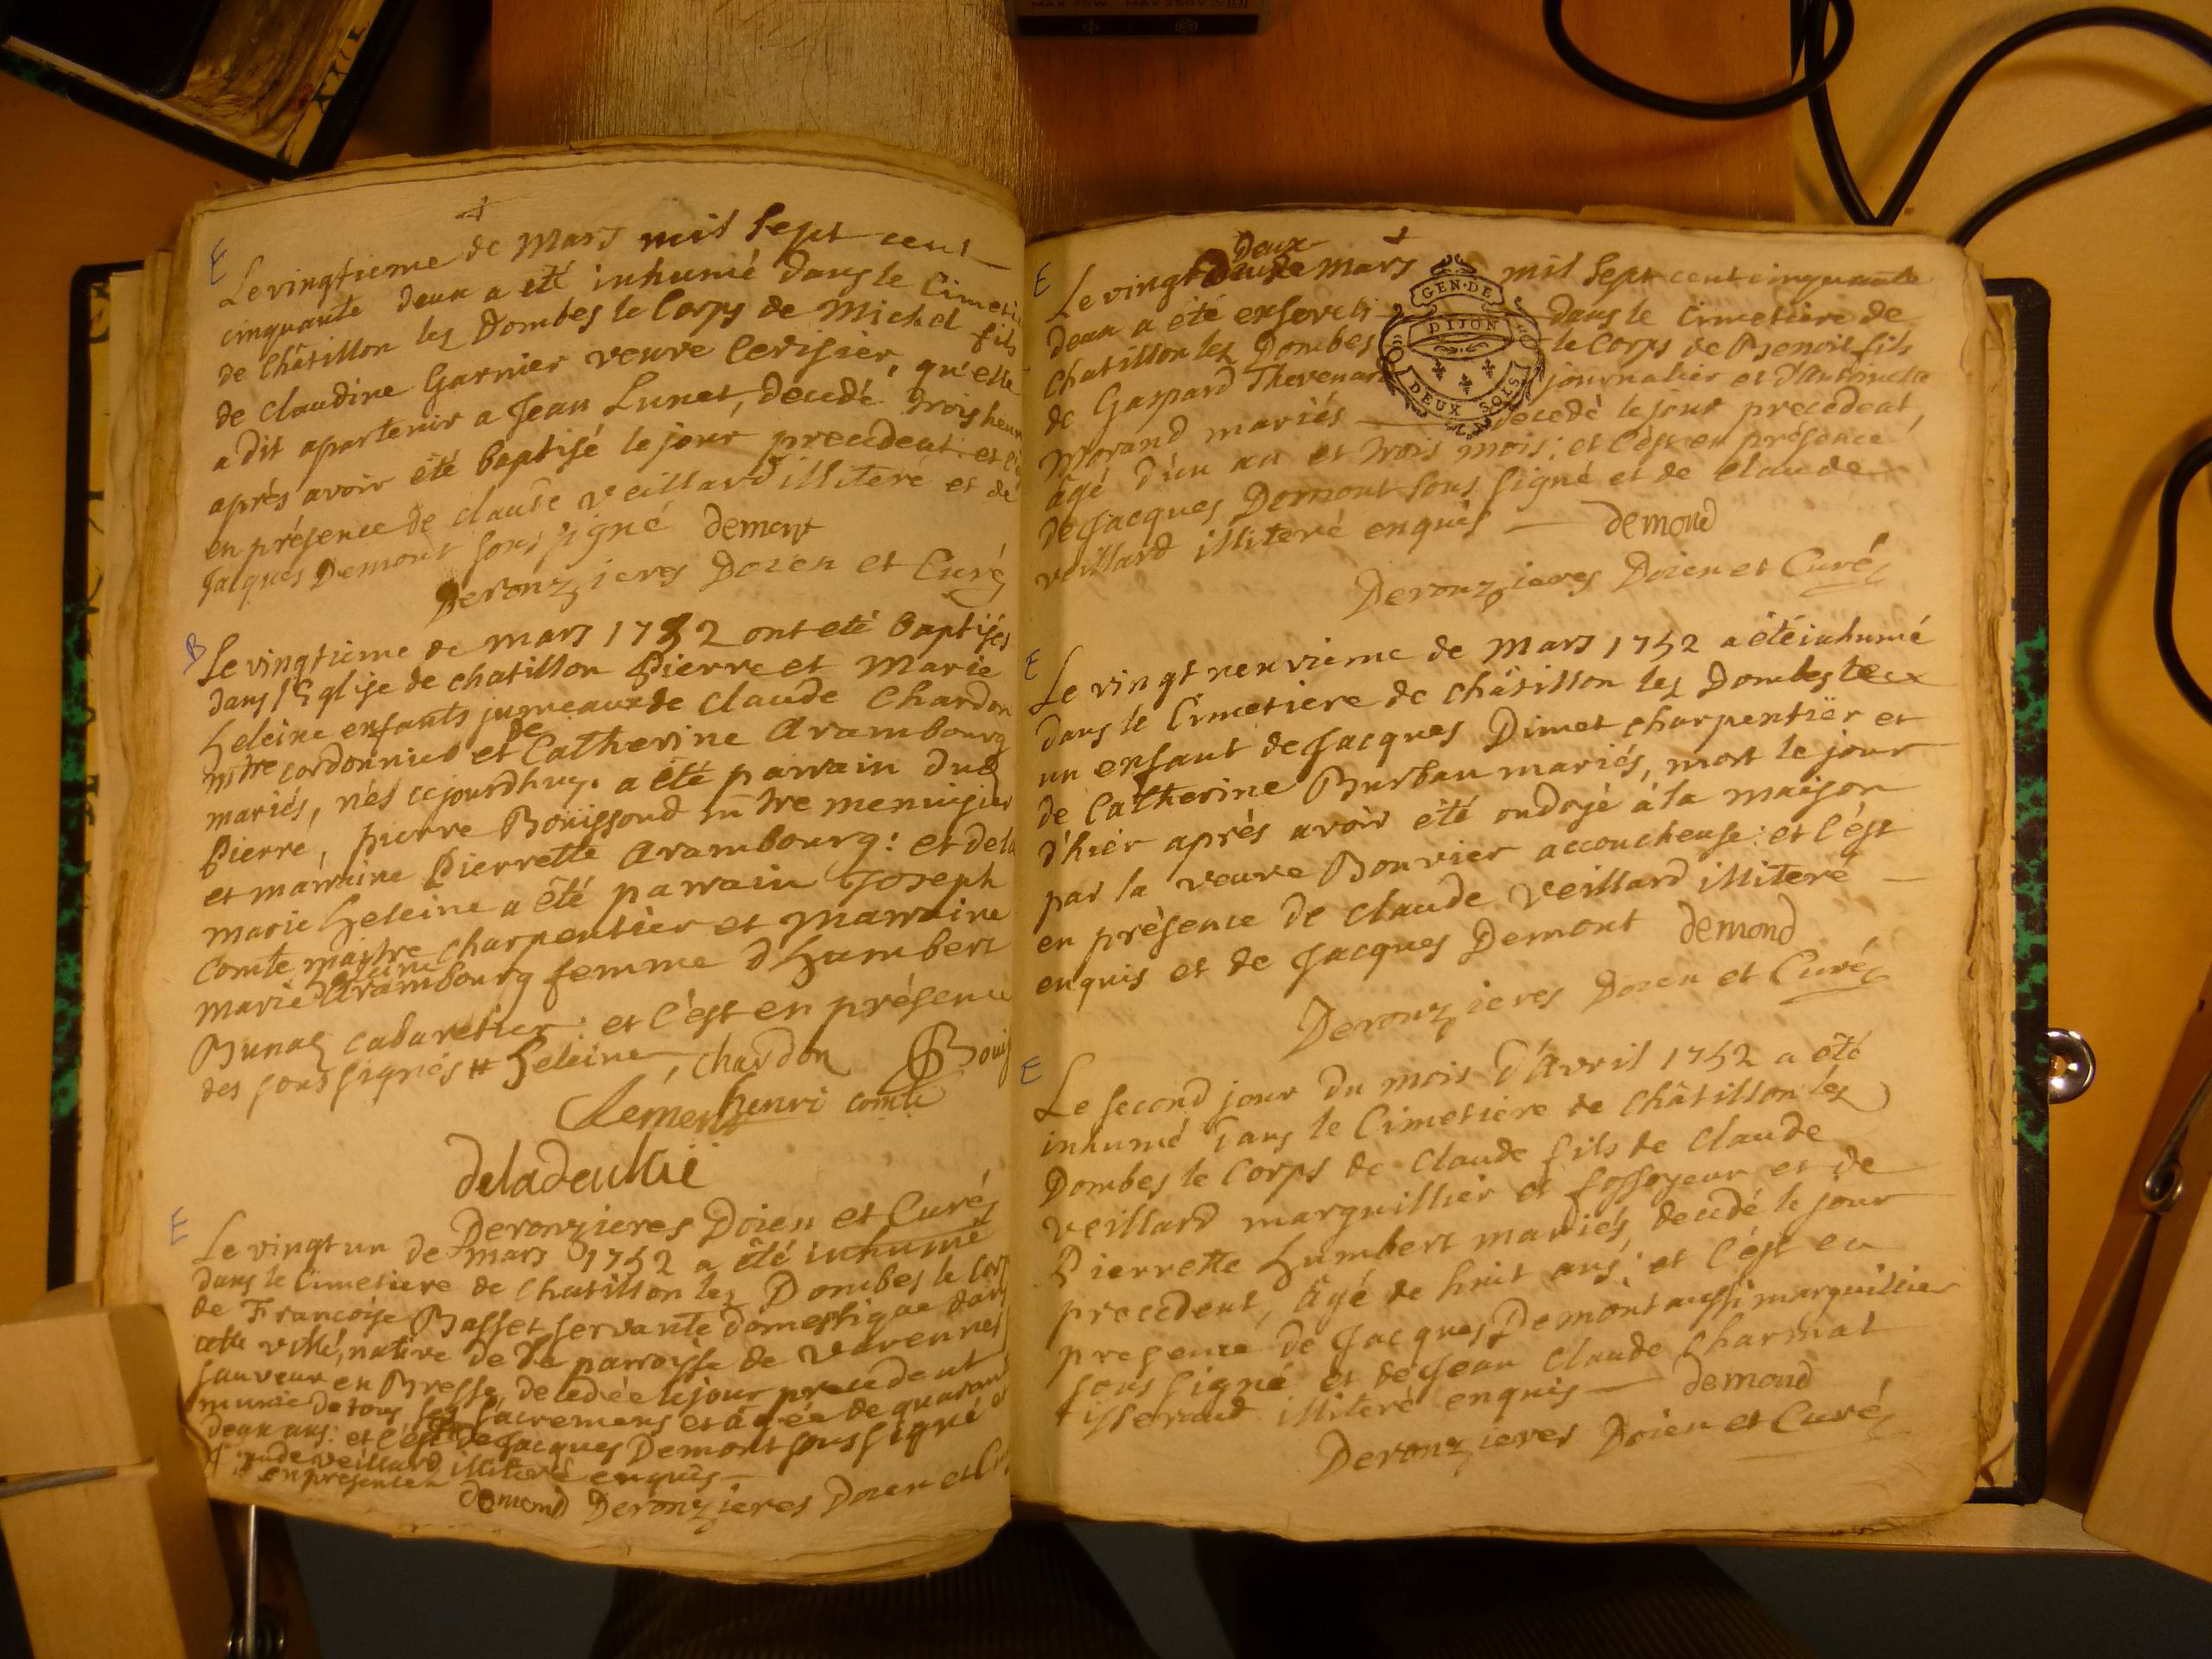 E
Le vingtieme de Mars mil sept cent
cinquante deux a été inhumé dans le Cimeti
de Châtillon lez Dombes le Corps de Michel fils
de claudine Garnier veuve Cerisier, qu'elle
a dit apartenir a Jean Lunet, decedé trois heur
après avoir été baptisé le jour precedent. et
en présence de claude veillard illiteré et de
Jacques Demont soussigné demont
Deronzieres Doien et Curé
B
Le vingtieme de mars 1752 ont eté baptisés
dans l'Eglise de chatillon Pierre et Marie
heleine enfants jumeaux de claude Chardon
mtre cordonnier et de Catherine Arambourg
mariés, nés cejourdhuy. a été parrain dud
Pierre, pierre Bouissoud mtre menuisier
et marraine Pierrette Arambourg: et de la
marie heleine a été parrain Joseph
Comte maistre charpentier et marraine
marie heleine Arambourg femme d'humbert
Bunaz cabaretier: et c'est en présence
des soussignés # heleine, chardon Boui
Clement henri comte
Deronzieres Doien et Curé
E
Le vingt un de mars 1752 a été inhumé
dans le Cimetiere de chatillon lez Dombes le Cor
de Francoise Basset servante domestique dans
cette ville, native de la parroisse de varennes
sauveur en Bresse, decedée le jour precedent
munie de tous ses sacremens et âgée de quaran
deux ans: et c'est de Jacques Demont soussigné et
veillard illiteré enquis
en presence
demond Deronzieres Doien et Cu
E
Le vingt deux mars mil sept cent cinquante
deux a été enseveli dans le Cimetiere de
Chatillon lez Dombes le Corps de Benoit fils
de Gaspard Thevenard journalier et d'Antoinette
Morand mariés decedé le jour precedent,
âgé d'un an et trois mois; et c'est en présence
de Jacques Demont sous signé et de claude
veillard illiteré enquis demond
Deronzieres Doien et Curé
GEN. DE
DIJON
DEUX SOLS
E
Le vingt neuvieme de Mars 1752 a été inhumé
dans le Cimetiere de châtillon lez Dombes
un enfant de Jacques Dimet charpentier et
de Catherine Burban mariés, mort le jour
d'hier après avoir été ondoyé à la maison
par la veuve Bouvier accoucheuse: et c'est
en présence de claude Veillard illiteré
enquis et de Jacques Demont demond
Deronzieres Doien et Curé
E
Le second jour du mois d'Avril 1752 a été
inhumé dans le Cimetiere de Châtillon lez
Dombes le Corps de Claude fils de Claude
veillard marguillier et fossoyeur et de
Pierrette humbert mariés, decedé le jour
precedent, âgé de huit ans; et c'est en
presence de Jacques Demont aussi marguillier
sous signé et de Jean Claude Charnat
tisserand illiteré enquis demond
Deronzieres Doien et Curé